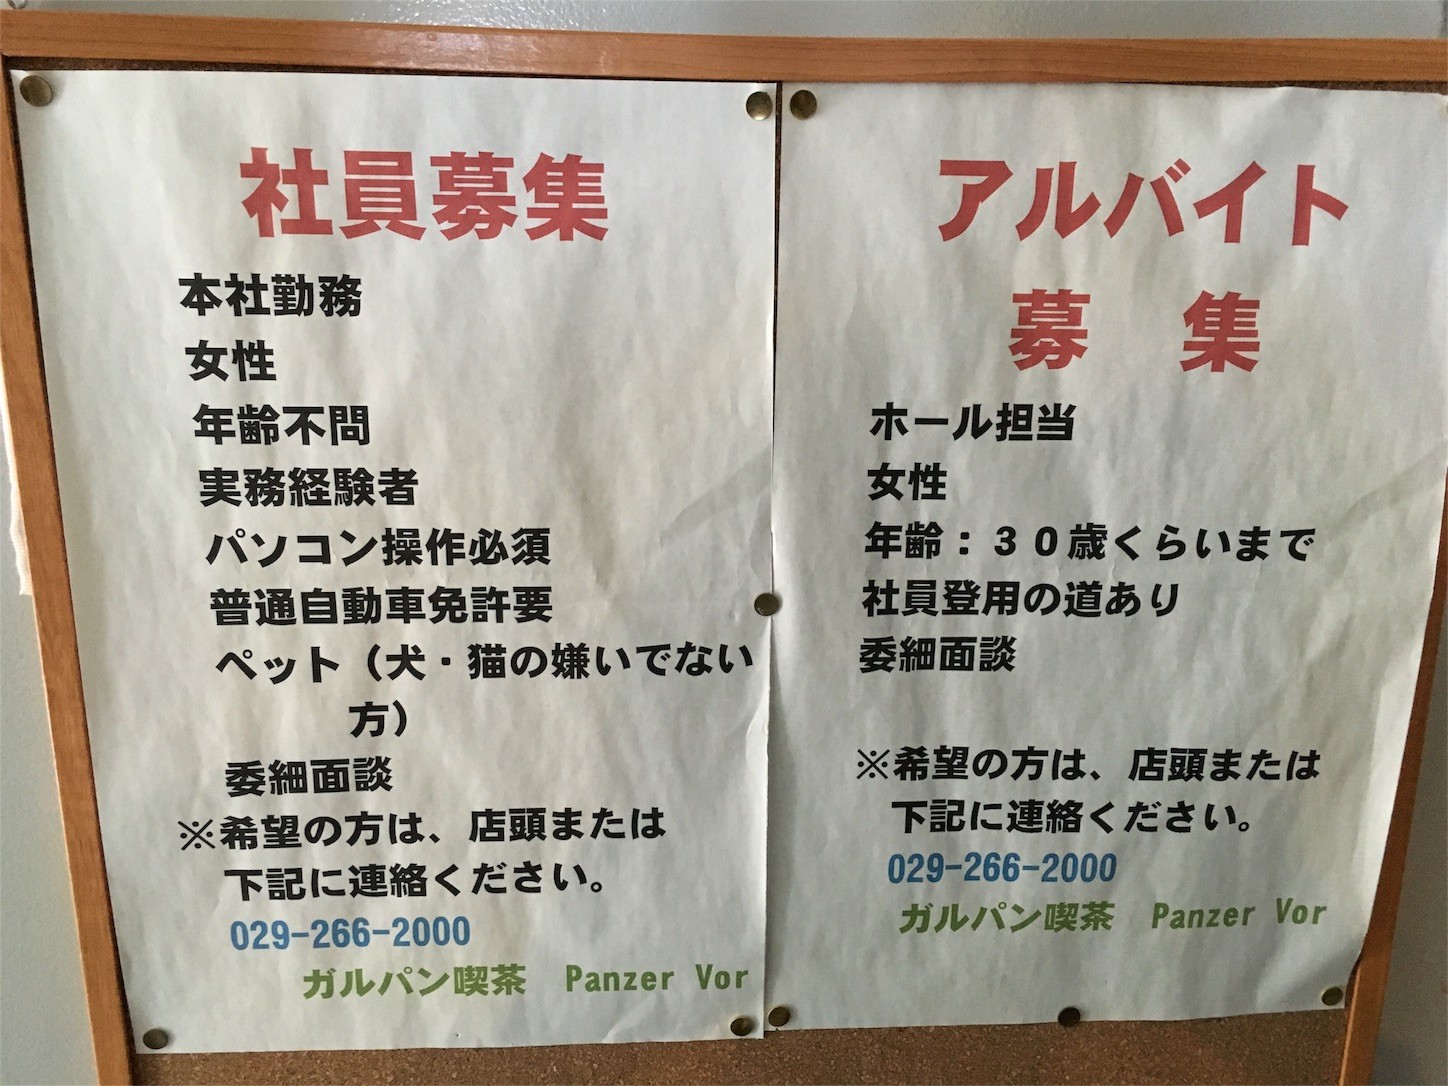 社員募集
本社勤務
女性
年齢不問
実務経験者
パソコン操作必須
普通自動車免許要
ペット（犬・猫の嫌いでない
方）
委細面談
※希望の方は、店頭または
下記に連絡ください。
029-266-2000
ガルパン喫茶　Panzer Vor
アルバイト
募　集
ホール担当
女性
年齢：３０歳くらいまで
社員登用の道あり
委細面談
※希望の方は、店頭または
下記に連絡ください。
029-266-2000
ガルパン喫茶　Panzer Vor